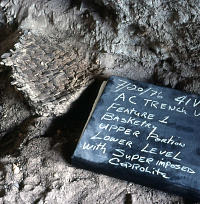 7/20/76 41V
AC TRENCH
Feature 1
Basketry
Upper Portion
Lower Level
with Superimposed
Coprolite